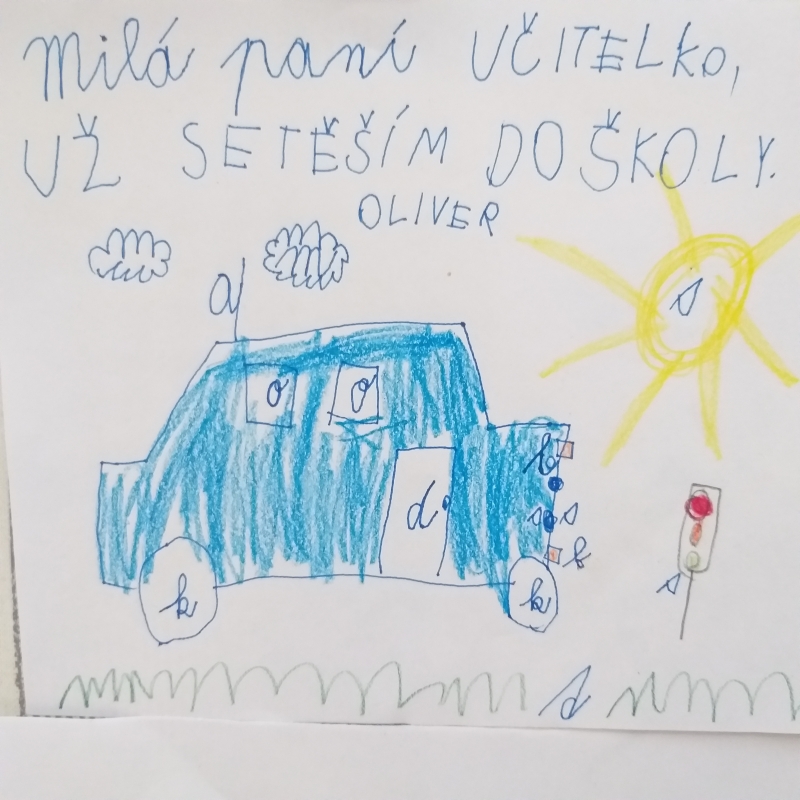 Milá paní UČITELKO,
UŽ SETĚŠÍM DO ŠKOLY.
OLIVER
a
s
o o
b
d
s s
b
k k
s
s